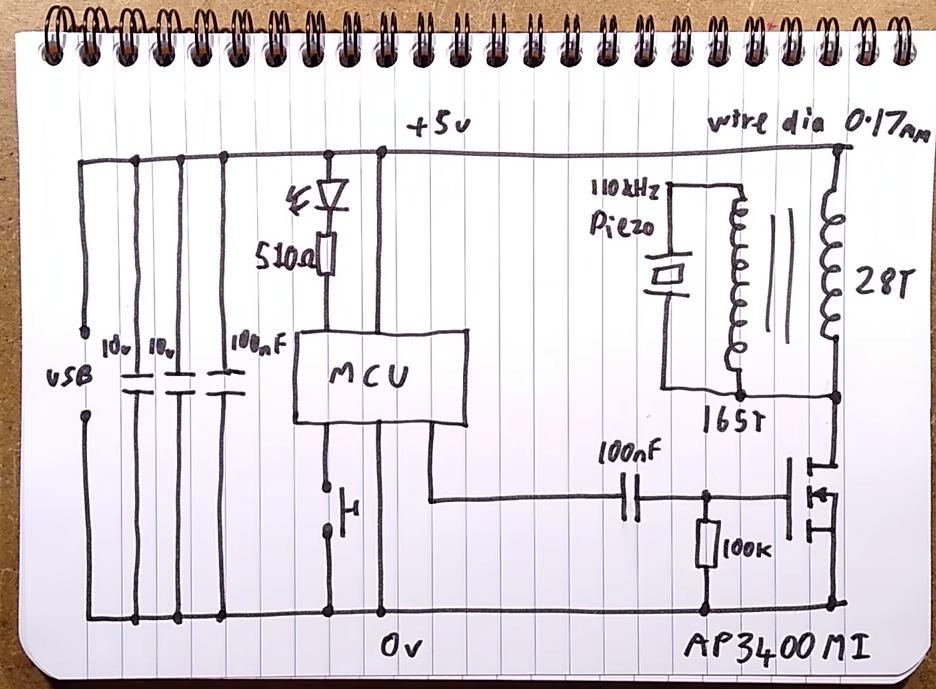 +5v
wire dia 0.17mm
110kHz
Piezo
510Ω
28T
10u
10u
100nF
USB
MCU
165T
100nF
100K
0v
AP3400MI